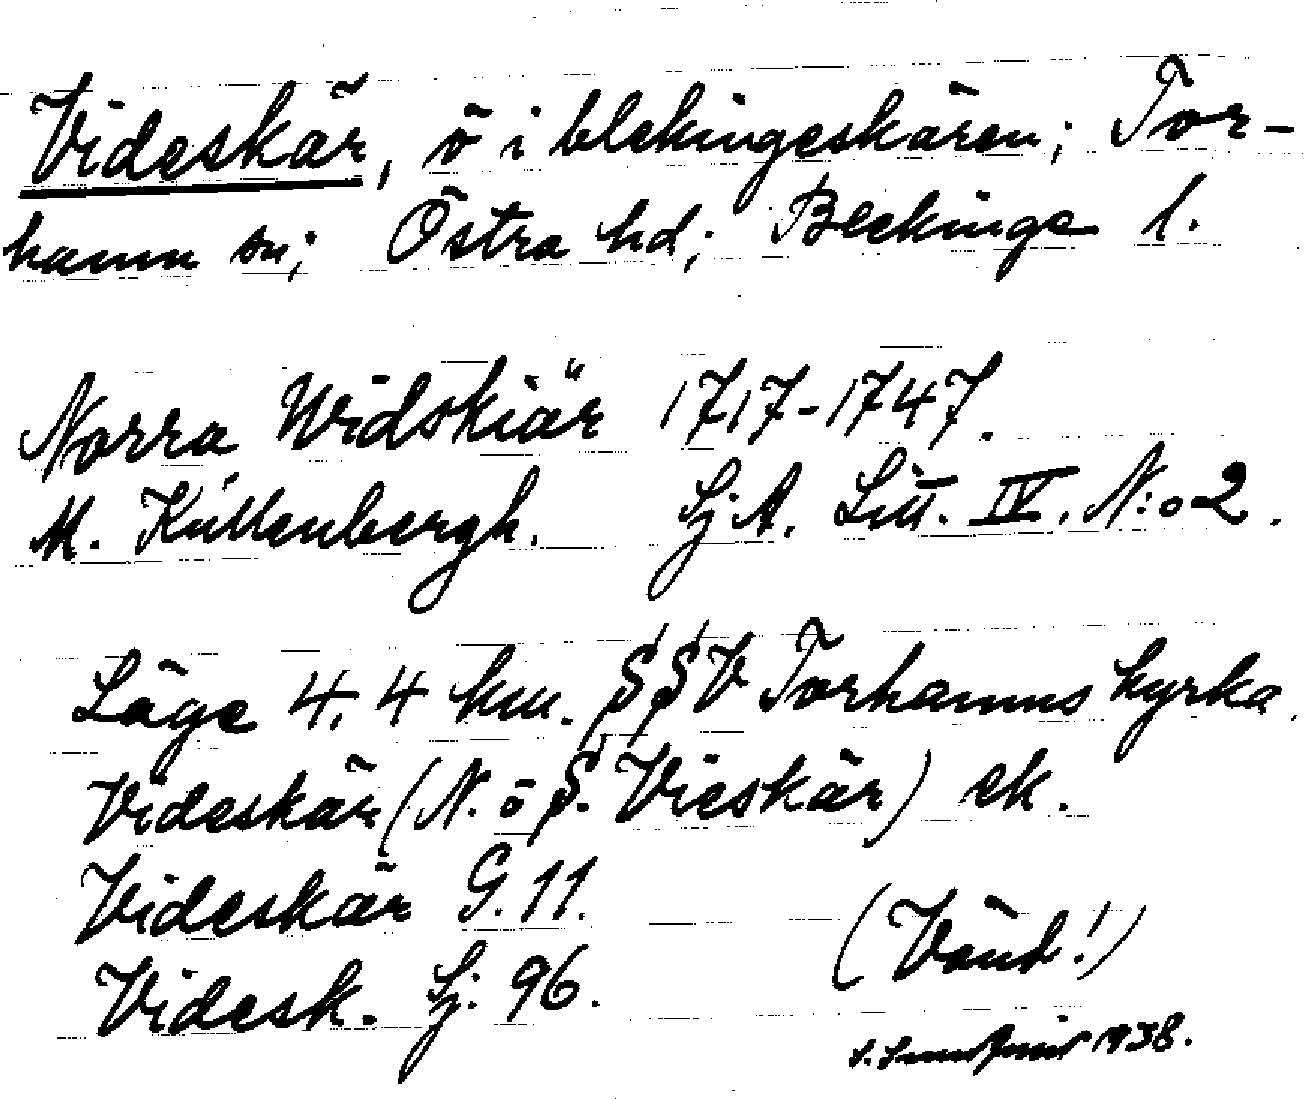 Videskär, ö i blekingeskären; Tor-
hamn sn; Östra hd; Bleckinge l.
Norra Widskiär 1717-1747.
M. Küllenbergh. Sj. A. Litt. IV. N:o 2.
Läge 4,4 km. SSV Torhamns kyrka.
Videskär (N. ö S. Vieskär) ek.
Videskär G. 11.
Videsk. Sj. 96.
(Vänd!)
1938.